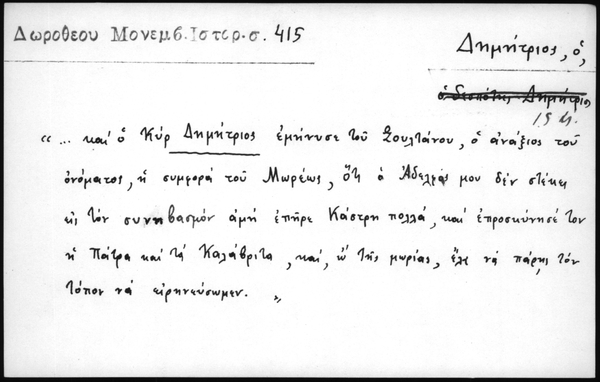 Δωροθεου Μονεμβ. Ιστορ. σ. 415
Δημήτριος, ὁ,
ὁ δεσπότης Δημήτριος
15 αι.
"... καὶ ὁ Κὺρ Δημήτριος ἐμήνυσε τοῦ Σουλτάνου, ὁ ἀνάξιος τοῦ
ὀνόματος, ἡ συμφορὰ τοῦ Μωρέως, ὅτι ὁ Ἀδελφός μου δὲν στέκει
εἰς τὸν συνηβασμὸν ἀμὴ ἐπῆρε Κάστρη πολλά, καὶ ἐπροσκύνησέ τον
ἡ Πάτρα καὶ τὰ Καλάβριτα, καί, ὢ τῆς μωρίας, ἔλα νὰ πάρῃς τὸν
τόπον νὰ εἰρηνεύσωμεν. "